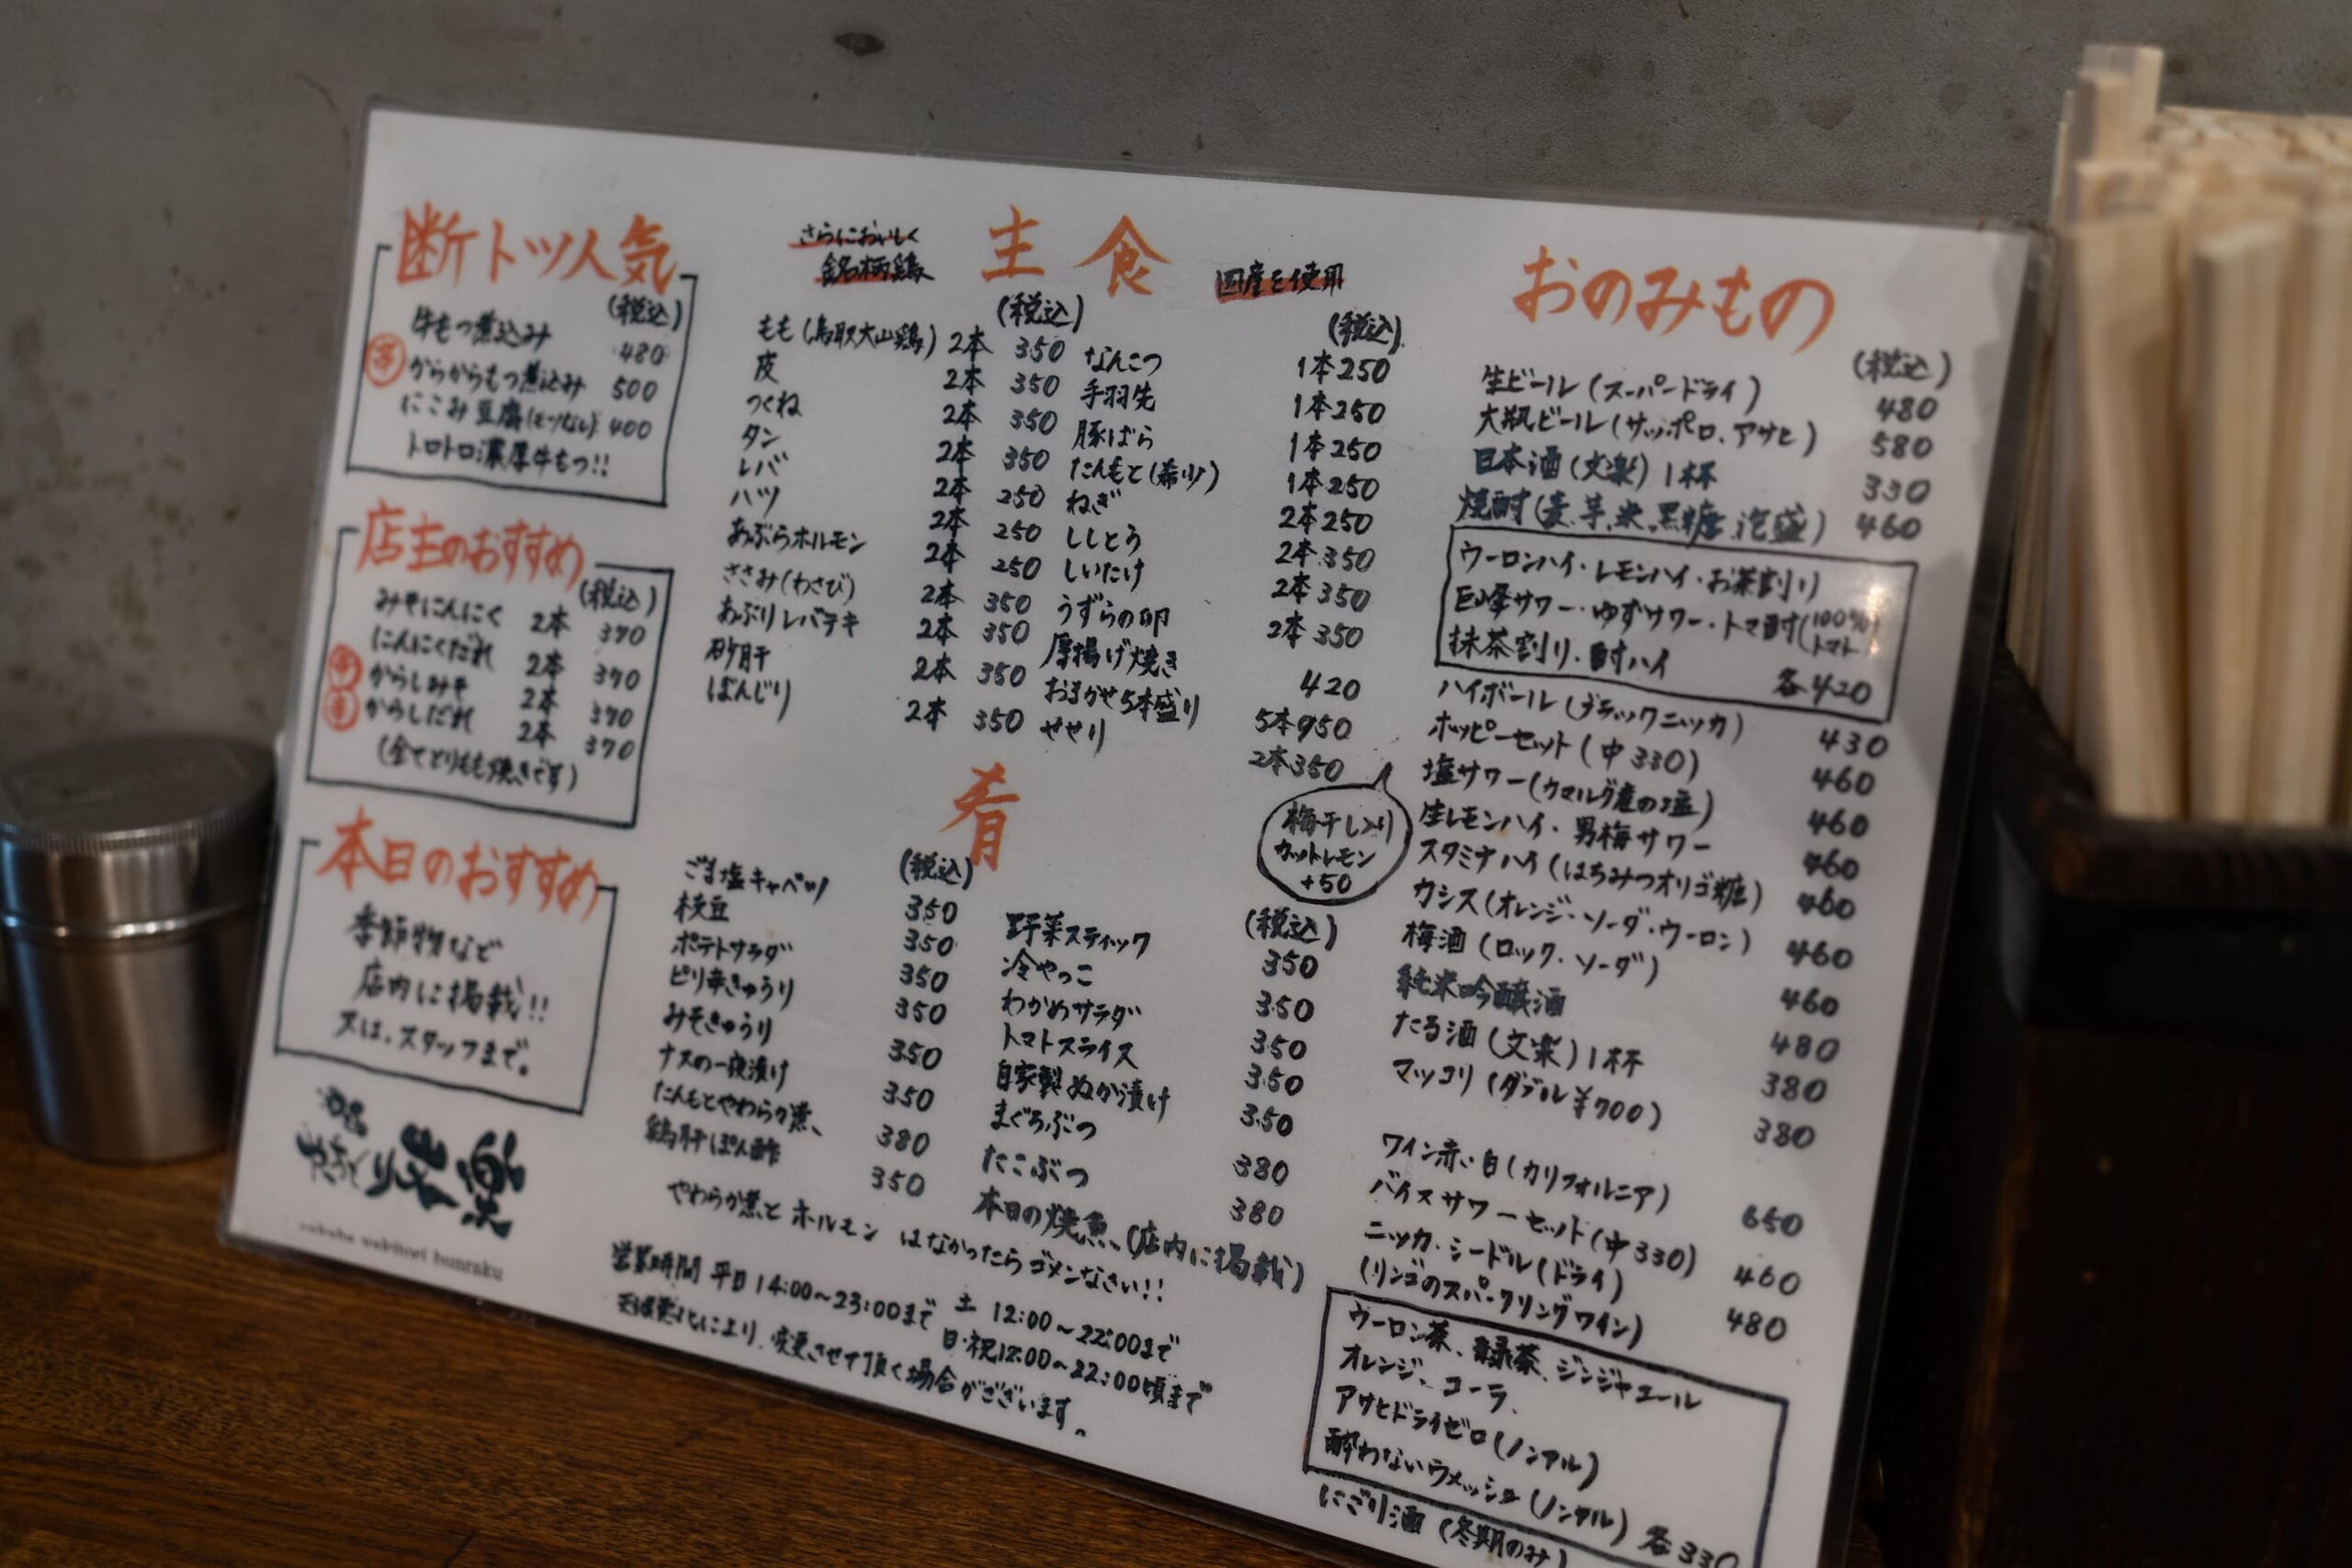 断トツ人気
(税込)
牛もつ煮込み 480
辛 からからもつ煮込み 500
にこみ豆腐(もつなし) 400
トロトロ濃厚牛もつ!!
店主のおすすめ
(税込)
みそにんにく 2本 370
にんにくだれ 2本 370
辛 からしみそ 2本 370
辛 からしだれ 2本 370
(全てとりもも焼きです)
本日のおすすめ
季節物など
店内に掲載!!
又は、スタッフまで。
やきとり文楽
yakitori bunraku
さらにおいしく
銘柄鶏
主食
国産を使用
(税込)
もも(鳥取大山鶏) 2本 350
皮 2本 350
つくね 2本 350
タン 2本 350
レバ 2本 250
ハツ 2本 250
あぶらホルモン 2本 250
ささみ(わさび) 2本 350
あぶりレバテキ 2本 350
砂肝 2本 350
ぼんじり 2本 350
(税込)
なんこつ 1本250
手羽先 1本250
豚ばら 1本250
たんもと(希少) 1本250
ねぎ 2本250
ししとう 2本350
しいたけ 2本350
うずらの卵 2本350
厚揚げ焼き 420
おまかせ5本盛り 5本950
せせり 2本350
肴
(税込)
ごま塩キャベツ 350
枝豆 350
ポテトサラダ 350
ピリ辛きゅうり 350
みそきゅうり 350
ナスの一夜漬け 350
たんもとやわらか煮、 380
鶏肝ぽん酢 350
(税込)
野菜スティック 350
冷やっこ 350
わかめサラダ 350
トマトスライス 350
自家製ぬか漬け 350
まぐろぶつ 380
たこぶつ 380
本日の焼魚、(店内に掲載)
やわらか煮とホルモン はなかったらゴメンなさい!!
営業時間 平日14:00~23:00まで 土 12:00~22:00まで
日・祝12:00~22:00頃まで
により、変更させて頂く場合がございます。
おのみもの
(税込)
生ビール(スーパードライ) 480
大瓶ビール(サッポロ、アサヒ) 580
日本酒(文楽)1杯 330
焼酎(麦、芋、米、黒糖、泡盛) 460
ウーロンハイ・レモンハイ・お茶割り
巨峰サワー・ゆずサワー・トマ酎(100%トマト)
抹茶割り・酎ハイ 各420
ハイボール(ブラックニッカ) 430
ホッピーセット(中330) 460
塩サワー(カマルグ産の塩) 460
生レモンハイ・男梅サワー 460
梅干し入り
カットレモン
+50
スタミナハイ(はちみつオリゴ糖) 460
カシス(オレンジ・ソーダ・ウーロン) 460
梅酒(ロック・ソーダ) 460
純米吟醸酒 480
たる酒(文楽)1杯 380
マッコリ(ダブル¥700) 380
ワイン赤・白(カリフォルニア) 650
バイスサワーセット(中330) 460
ニッカ・シードル(ドライ) 480
(リンゴのスパークリングワイン)
ウーロン茶、緑茶、ジンジャエール
オレンジ、コーラ、
アサヒドライゼロ(ノンアル)
酔わないウメッシュ(ノンアル) 各330
にごり酒(冬期のみ)